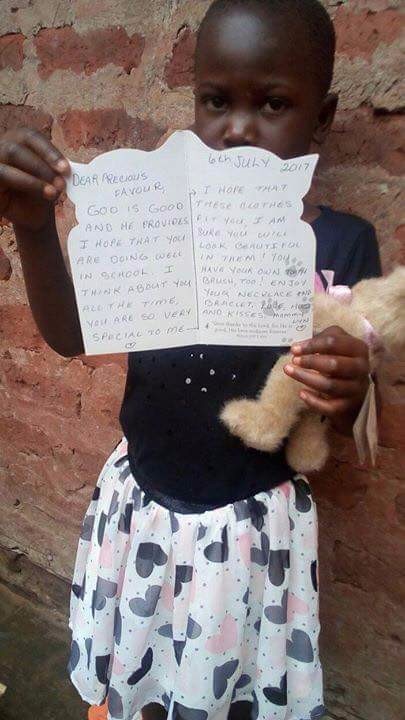 DEAR PRECIOUS
FAVOUR,
GOD IS GOOD
AND HE PROVIDES
I HOPE THAT YOU
ARE DOING WELL
IN SCHOOL. I
THINK ABOUT YOU
ALL THE TIME,
YOU ARE SO VERY
SPECIAL TO ME
6th JULY 2017
I HOPE THAT
THESE CLOTHES
FIT YOU, I AM
SURE YOU WILL
LOOK BEAUTIFUL
IN THEM! YOU
HAVE YOUR OWN
BRUSH, TOO! ENJOY
YOUR NECKLACE AND
BRACLET.
AND KISSES. Mommy
Give thanks to the Lord, for He is
good. His love endures forever.